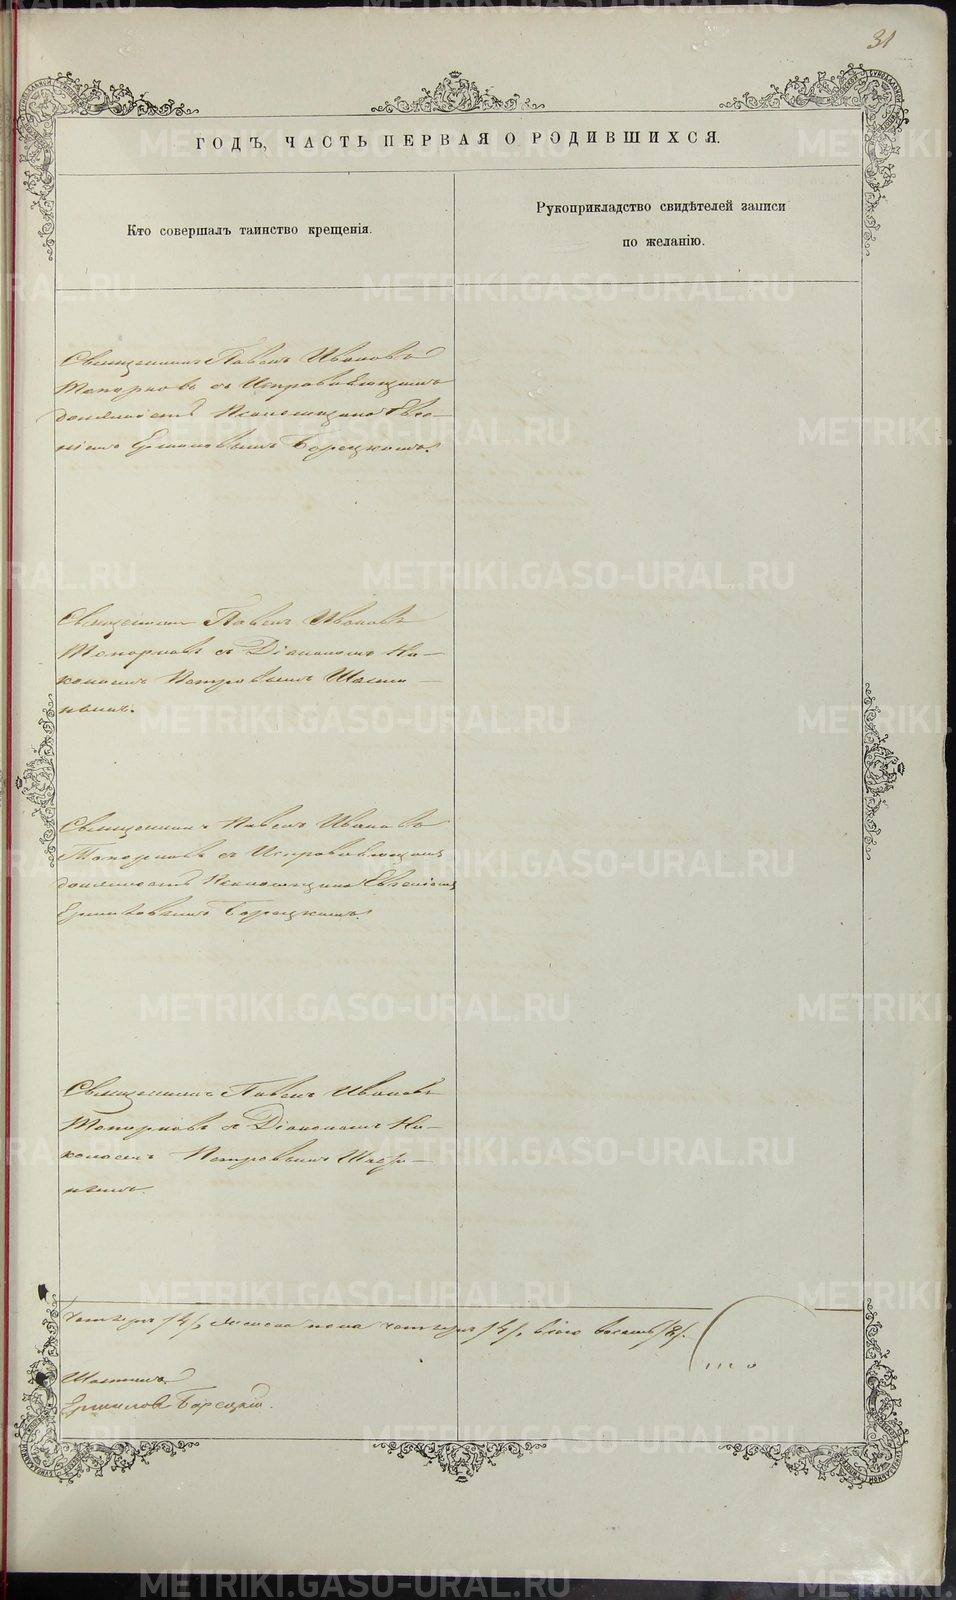 31
ГОДЪ, ЧАСТЬ ПЕРВАЯ О РОДИВШИХСЯ.
Кто совершалъ таинство крещенія.
Рукоприкладство свидѣтелей записи
по желанію.
Священникъ Павелъ Ивановъ
Топорковъ съ Исправляющимъ
должность Псаломщика Евге-
ніемъ Ермиловымъ Борецкимъ.
Священникъ Павелъ Ивановъ
Топорковъ съ Діакономъ Ни-
колаемъ Петровымъ
Священникъ Павелъ Ивановъ
Топорковъ съ Исправляющимъ
должность Псаломщика Евгеніемъ
Ермиловымъ Борецкимъ.
Священникъ Павелъ Ивановъ
Топорковъ съ Діакономъ Ни-
колаемъ Петровымъ
четыре /4/, женска пола четыре /4/, всего восемь /8/.
Ермиловъ Борецкій.
METRIKI.GASO-URAL.RU